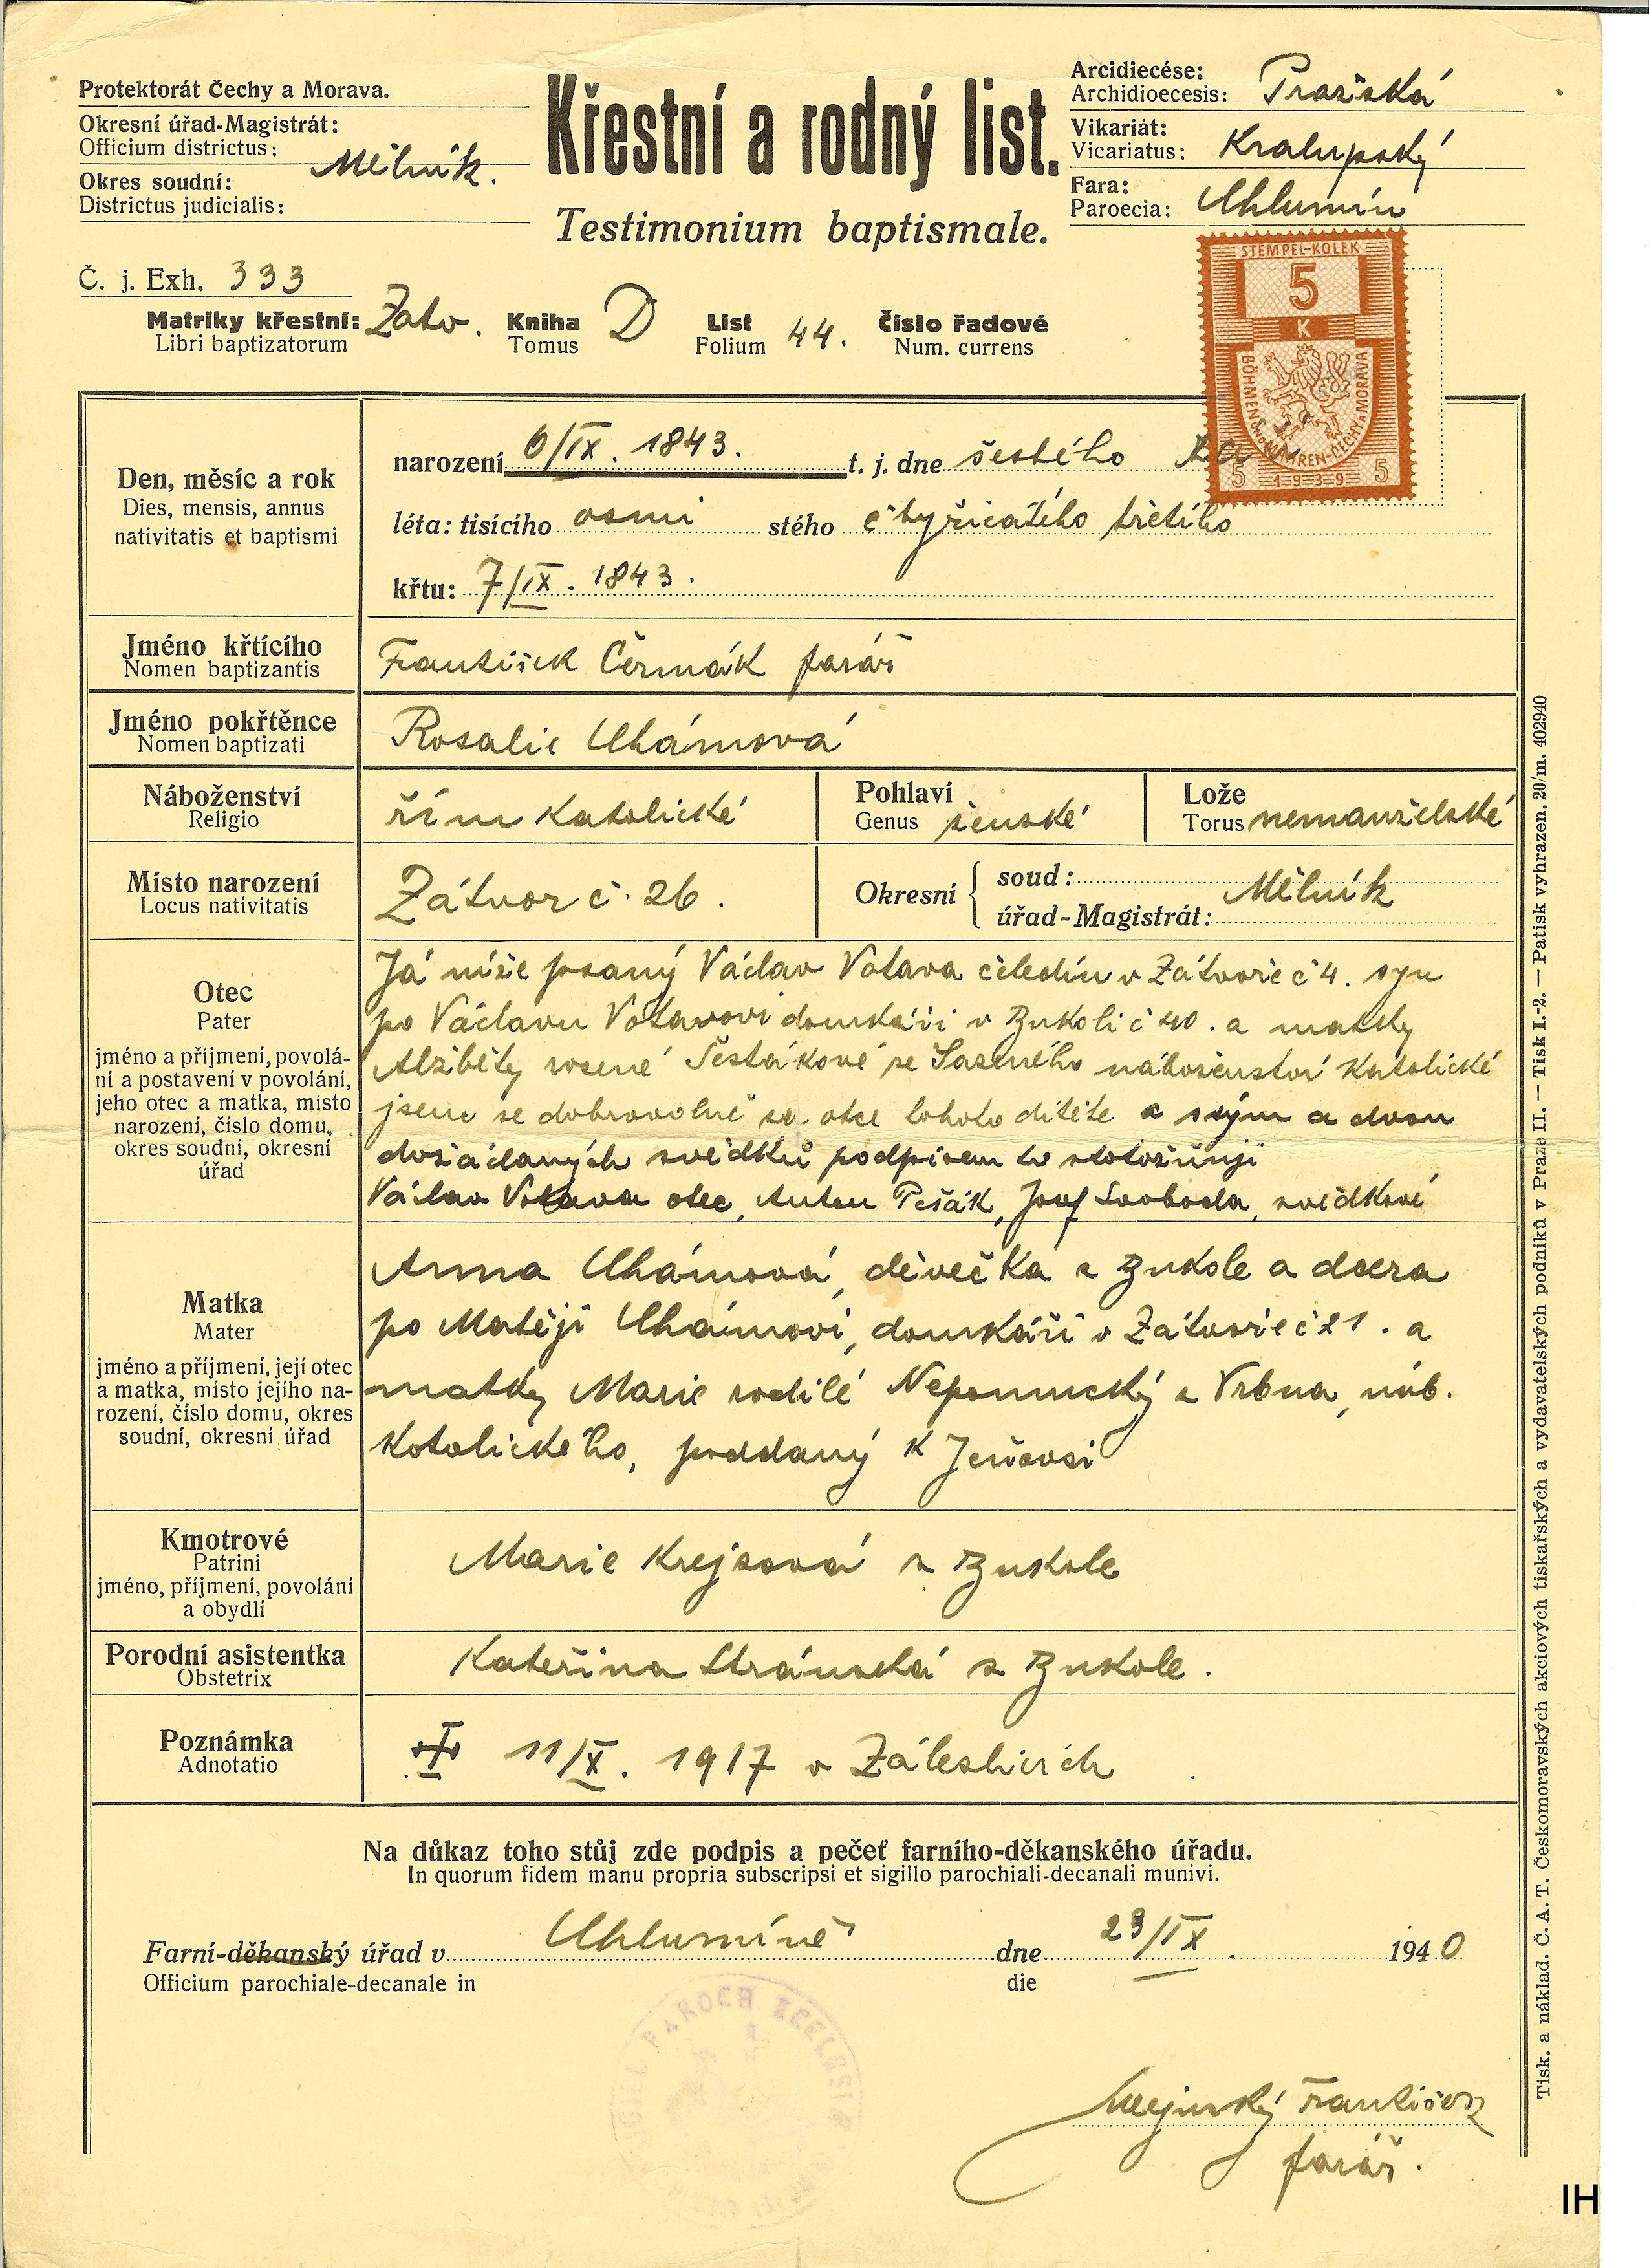 Protektorát Čechy a Morava.
Okresní úřad-Magistrát:
Officium districtus:
Mělník.
Okres soudní:
Districtus judicialis:
Křestní a rodný list.
Testimonium baptismale.
Arcidiecése:
Archidioecesis: Pražská
Vikariát:
Vicariatus: Kralupský
Fara:
Paroecia: Chlumín
STEMPEL-KOLEK
5
K
BÖHMEN U. MÄHREN-ČECHY A MORAVA
5 1939 5
Č. j. Exh. 333
Matriky křestní: Zátv. Kniha D List 44. Číslo řadové
Libri baptizatorum Tomus Folium Num. currens
Den, měsíc a rok
Dies, mensis, annus
nativitatis et baptismi
narození 6/IX. 1843. t. j. dne šestého
léta: tisícího osmi stého čtyřicátého třetího
křtu: 7/IX. 1843.
Jméno křtícího
Nomen baptizantis
František Čermák farář
Jméno pokřtěnce
Nomen baptizati
Rosalie Chámová
Náboženství
Religio
řím katolické
Pohlaví
Genus ženské
Lože
Torus nemanželské
Místo narození
Locus nativitatis
Zátvor č. 26.
Okresní
soud:
Mělník
úřad-Magistrát:
Otec
Pater
jméno a příjmení, povolá-
ní a postavení v povolání,
jeho otec a matka, místo
narození, číslo domu,
okres soudní, okresní
úřad
Já níže psaný Václav Votava čeledín v Zátvoře č 4. syn
po Václavu Votavovi domkáři v Bukoli č 40. a matky
Alžběty rozené Šestákové ze náboženství katolické
jsem se dobrovolně za otce tohoto dítěte a svým a dvou
dožádaných svědků podpisem to stotožňuji
Václav Votava otec, Anton Pešák, Josef Svoboda, svědkové
Matka
Mater
jméno a příjmení, její otec
a matka, místo jejího na-
rození, číslo domu, okres
soudní, okresní úřad
Anna Chámová, děvečka z Bukole a dcera
po Matěji Chámovi, domkáři v Zátvoře č 21. a
matky Marie rodilé Nepomucký z Vrbna, náb.
katolického, poddaný k
Kmotrové
Patrini
jméno, příjmení, povolání
a obydlí
Marie Krejzová z Bukole
Porodní asistentka
Obstetrix
Kateřina Stránská z Bukole.
Poznámka
Adnotatio
11/X. 1917 v Zálezlicích
Na důkaz toho stůj zde podpis a pečeť farního-děkanského úřadu.
In quorum fidem manu propria subscripsi et sigillo parochiali-decanali munivi.
Farní-děkanský úřad v Chlumíně dne 23/IX. 1940
Officium parochiale-decanale in die
PAROCH ECCLESI
František
farář.
Tisk. a náklad. Č. A. T. Českomoravských akciových tiskařských a vydavatelských podniků v Praze II. — Tisk I.-2. — Patisk vyhrazen. 20/m. 402940
IH